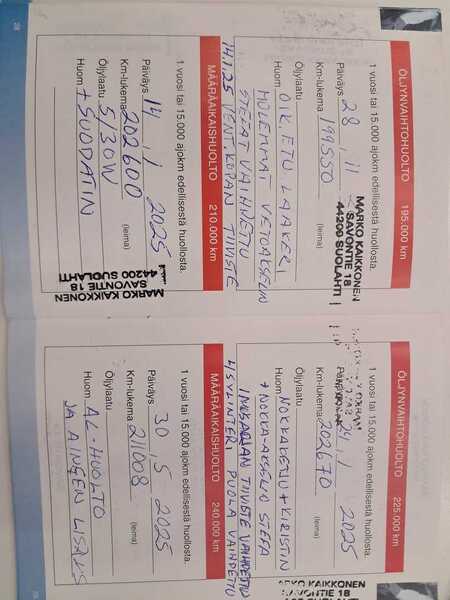 ÖLJYNVAIHTOHUOLTO 195.000 km
1 vuosi tai 15.000 ajokm edellisestä huollosta.
Päiväys 28 . 11
Km-lukema 199550 (leima)
Öljylaatu
Huom OIK. ETU. LAAKERI
MOLEMMAT VETOAKSELIN
STEFAT VAIHDETTU
14.1.25 VENT. KOPAN TIIVISTE
MARKO KAIKKONEN
SAVONTIE 18
44200 SUOLAHTI
MÄÄRÄAIKAISHUOLTO 210.000 km
1 vuosi tai 15.000 ajokm edellisestä huollosta.
Päiväys 14 . 1 2025
Km-lukema 202600 (leima)
Öljylaatu 5/30W
Huom + SUODATIN
MARKO KAIKKONEN
SAVONTIE 18
44200 SUOLAHTI
ÖLJYNVAIHTOHUOLTO 225.000 km
1 vuosi tai 15.000 ajokm edellisestä huollosta.
Päiväys 24 . 1 2025
Km-lukema 202670 (leima)
Öljylaatu
Huom NOKKAKETJU + KIRISTIN
+ NOKKA-AKSELIN STEFA
IMUSARJAN TIIVISTE VAIHDETTU
4 SYLINTERI PUOLA VAIHDETTU
MÄÄRÄAIKAISHUOLTO 240.000 km
1 vuosi tai 15.000 ajokm edellisestä huollosta.
Päiväys 30 . 5 2025
Km-lukema 211008 (leima)
Öljylaatu
Huom AL-HUOLTO
JA AINEEN LISÄYS
MARKO KAIKKONEN
SAVONTIE 18
SUOLAHTI